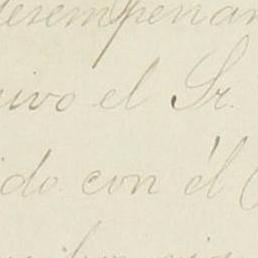 desempeñan
ivo el Sr.
do con él